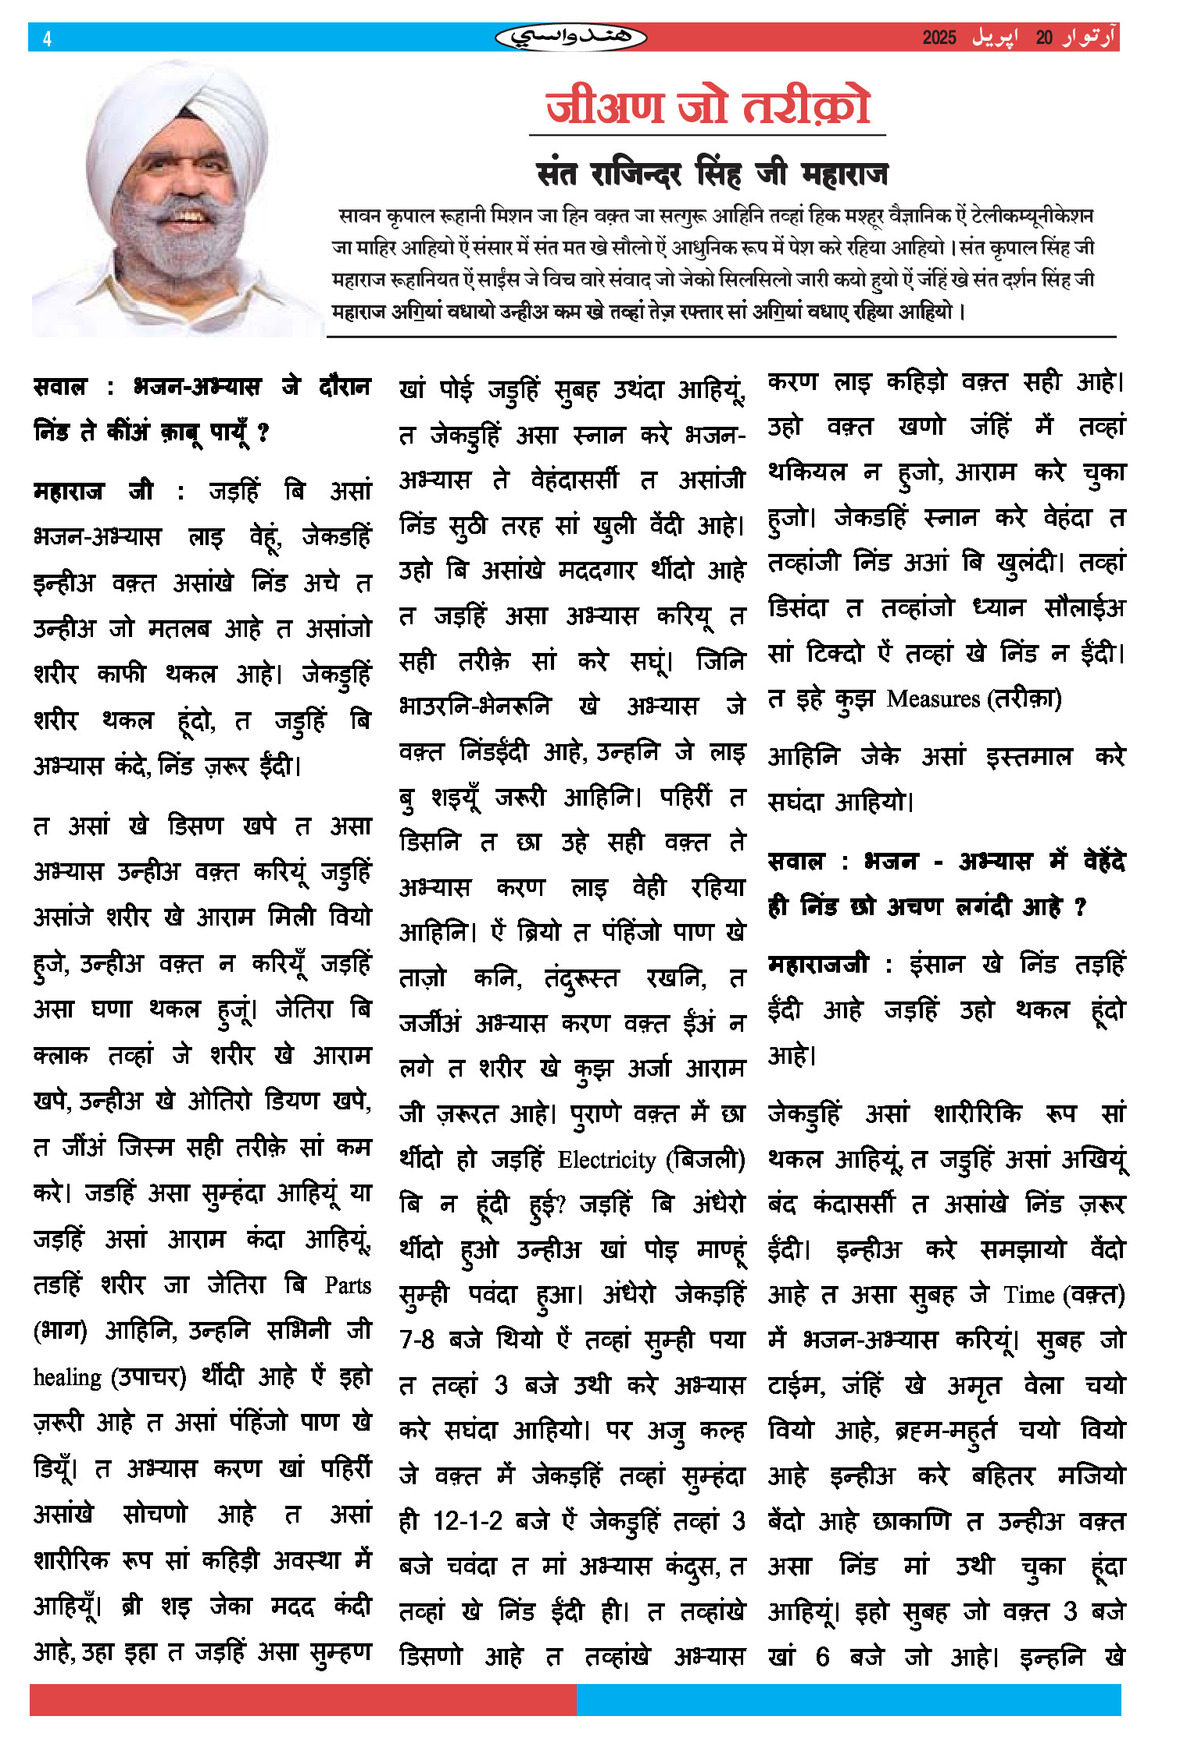 4
هندواسي
آرتوار 20 اپريل 2025
जीअण जो तरीक़ो
संत राजिन्दर सिंह जी महाराज
सावन कृपाल रूहानी मिशन जा हिन वक़्त जा सत्गुरू आहिनि तव्हां हिक मश्हूर वैज्ञानिक ऐं टेलीकम्यूनीकेशन
जा माहिर आहियो ऐं संसार में संत मत खे सौलो ऐं आधुनिक रूप में पेश करे रहिया आहियो । संत कृपाल सिंह जी
महाराज रूहानियत ऐं साईंस जे विच वारे संवाद जो जेको सिलसिलो जारी कयो हुयो ऐं जंहिं खे संत दर्शन सिंह जी
महाराज अग॒ियां वधायो उन्हीअ कम खे तव्हां तेज़ रफ्तार सां अग॒ियां वधाए रहिया आहियो ।
सवाल : भजन-अभ्यास जे दौरान
निंड ते कींअं क़ाबू पायूँ ?
महाराज जी : जड़हिं बि असां
भजन-अभ्यास लाइ वेहूं, जेकडहिं
इन्हीअ वक़्त असांखे निंड अचे त
उन्हीअ जो मतलब आहे त असांजो
शरीर काफी थकल आहे। जेकड़ुहिं
शरीर थकल हूंदो, त जड़ुहिं बि
अभ्यास कंदे, निंड ज़रूर ईंदी।
त असां खे डिसण खपे त असा
अभ्यास उन्हीअ वक़्त करियूं जड़ुहिं
असांजे शरीर खे आराम मिली वियो
हुजे, उन्हीअ वक़्त न करियूँ जड़हिं
असा घणा थकल हुजूं। जेतिरा बि
क्लाक तव्हां जे शरीर खे आराम
खपे, उन्हीअ खे ओतिरो डियण खपे,
त जींअं जिस्म सही तरीक़े सां कम
करे। जडहिं असा सुम्हंदा आहियूं या
जड़हिं असां आराम कंदा आहियूं,
तडहिं शरीर जा जेतिरा बि Parts
(भाग) आहिनि, उन्हनि सभिनी जी
healing (उपाचर) थींदी आहे ऐं इहो
ज़रूरी आहे त असां पंहिंजो पाण खे
डियूँ। त अभ्यास करण खां पहिरीं
असांखे सोचणो आहे त असां
शारीरिक रूप सां कहिड़ी अवस्था में
आहियूँ। ब्री शइ जेका मदद कंदी
आहे, उहा इहा त जड़हिं असा सुम्हण
खां पोई जड़ुहिं सुबह उथंदा आहियूं,
त जेकड़ुहिं असा स्नान करे भजन-
अभ्यास ते वेहंदासर्सी त असांजी
निंड सुठी तरह सां खुली वेंदी आहे।
उहो बि असांखे मददगार थींदो आहे
त जड़हिं असा अभ्यास करियू त
सही तरीक़े सां करे सघूं। जिनि
भाउरनि-भेनरूनि खे अभ्यास जे
वक़्त निंडईंदी आहे, उन्हनि जे लाइ
बु शइयूँ जरूरी आहिनि। पहिरीं त
डिसनि त छा उहे सही वक़्त ते
अभ्यास करण लाइ वेही रहिया
आहिनि। ऐं ब्रियो त पंहिंजो पाण खे
ताज़ो कनि, तंदुरूस्त रखनि, त
जर्जीअं अभ्यास करण वक़्त ईंअं न
लगे त शरीर खे कुझ अर्जा आराम
जी ज़रूरत आहे। पुराणे वक़्त में छा
थींदो हो जड़हिं Electricity (बिजली)
बि न हूंदी हुई? जड़हिं बि अंधेरो
थींदो हुओ उन्हीअ खां पोइ माण्हूं
सुम्ही पवंदा हुआ। अंधेरो जेकड़हिं
7-8 बजे थियो ऐं तव्हां सुम्ही पया
त तव्हां 3 बजे उथी करे अभ्यास
करे सघंदा आहियो। पर अजु कल्ह
जे वक़्त में जेकड़हिं तव्हां सुम्हंदा
ही 12-1-2 बजे ऐं जेकड़ुहिं तव्हां 3
बजे चवंदा त मां अभ्यास कंदुस, त
तव्हां खे निंड ईंदी ही। त तव्हांखे
डिसणो आहे त तव्हांखे अभ्यास
करण लाइ कहिड़ो वक़्त सही आहे।
उहो वक़्त खणो जंहिं में तव्हां
थकियल न हुजो, आराम करे चुका
हुजो। जेकडहिं स्नान करे वेहंदा त
तव्हांजी निंड अआं बि खुलंदी। तव्हां
डिसंदा त तव्हांजो ध्यान सौलाईअ
सां टिक्दो ऐं तव्हां खे निंड न ईंदी।
त इहे कुझ Measures (तरीक़ा)
आहिनि जेके असां इस्तमाल करे
सघंदा आहियो।
सवाल : भजन - अभ्यास में वेहेंदे
ही निंड छो अचण लगंदी आहे ?
महाराजजी : इंसान खे निंड तड़हिं
ईंदी आहे जड़हिं उहो थकल हूंदो
आहे।
जेकड़ुहिं असां शारीरिकि रूप सां
थकल आहियूं, त जड़ुहिं असां अखियूं
बंद कंदासर्सी त असांखे निंड ज़रूर
ईंदी। इन्हीअ करे समझायो वेंदो
आहे त असा सुबह जे Time (वक़्त)
में भजन-अभ्यास करियूं। सुबह जो
टाईम, जंहिं खे अमृत वेला चयो
वियो आहे, ब्रह्म-महुर्त चयो वियो
आहे इन्हीअ करे बहितर मजियो
बेंदो आहे छाकाणि त उन्हीअ वक़्त
असा निंड मां उथी चुका हूंदा
आहियूं। इहो सुबह जो वक़्त 3 बजे
खां 6 बजे जो आहे। इन्हनि खे